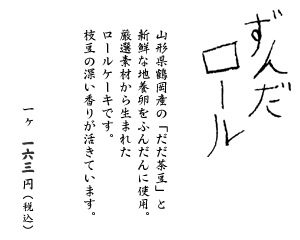 ずんだ
ロール
山形県鶴岡産の「だだ茶豆」と
新鮮な地養卵をふんだんに使用。
厳選素材から生まれた
ロールケーキです。
枝豆の深い香りが活きています。
一ヶ 一六三円（税込）